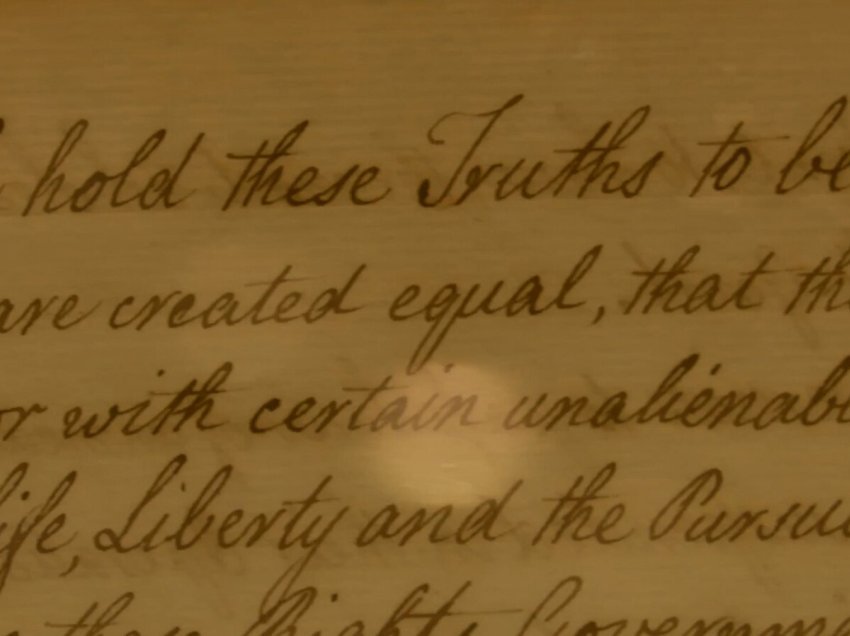 hold these Truths to be
are created equal, that the
or with certain unalienab
life, Liberty and the Pursu
Rights, Governme